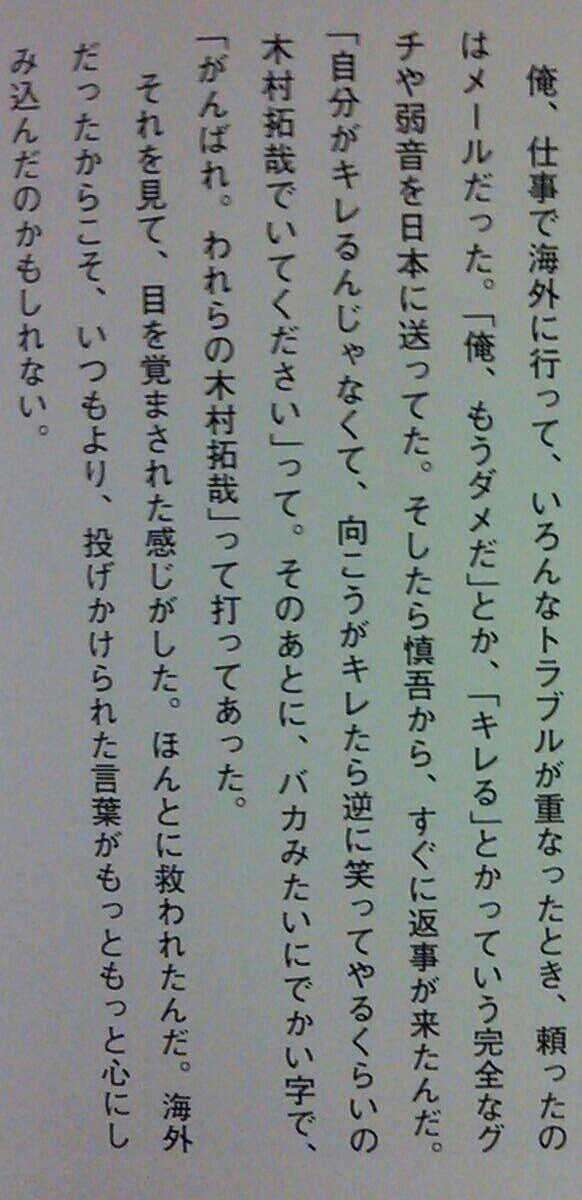 俺、仕事で海外に行って、いろんなトラブルが重なったとき、頼ったの
はメールだった。「俺、もうダメだ」とか、「キレる」とかっていう完全なグ
チや弱音を日本に送ってた。そしたら慎吾から、すぐに返事が来たんだ。
「自分がキレるんじゃなくて、向こうがキレたら逆に笑ってやるくらいの
木村拓哉でいてください」って。そのあとに、バカみたいにでかい字で、
「がんばれ。われらの木村拓哉」って打ってあった。
それを見て、目を覚まされた感じがした。ほんとに救われたんだ。海外
だったからこそ、いつもより、投げかけられた言葉がもっともっと心にし
み込んだのかもしれない。